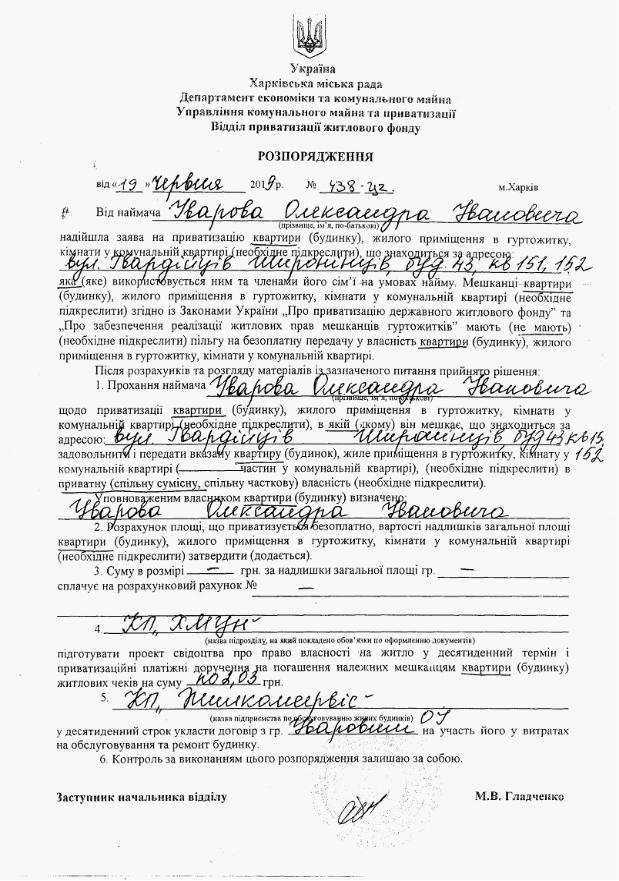 Україна
Харківська міська рада
Департамент економіки та комунального майна
Управління комунального майна та приватизації
Відділ приватизації житлового фонду
РОЗПОРЯДЖЕННЯ
від «19» червня 2019р. № 438-цг. м.Харків
Від наймача Уварова Олександра Івановича
(прізвище, ім'я, по-батькові)
надійшла заява на приватизацію квартири (будинку), жилого приміщення в гуртожитку,
кімнати у комунальній квартирі (необхідне підкреслити), що знаходиться за адресою:
вул. Гвардійців Широнінців, буд. 43, кв 151, 152
якій (яке) використовується ним та членами його сім'ї на умовах найму. Мешканці квартири
(будинку), жилого приміщення в гуртожитку, кімнати у комунальній квартирі (необхідне
підкреслити) згідно із Законами України „Про приватизацію державного житлового фонду" та
„Про забезпечення реалізації житлових прав мешканців гуртожитків" мають (не мають)
(необхідне підкреслити) пільгу на безоплатну передачу у власність квартири (будинку), жилого
приміщення в гуртожитку, кімнати у комунальній квартирі.
Після розрахунків та розгляду матеріалів із зазначеного питання прийнято рішення:
1. Прохання наймача Уварова Олександра Івановича
(прізвище, ім'я, по-батькові)
щодо приватизації квартири (будинку), жилого приміщення в гуртожитку, кімнати у
комунальній квартирі (необхідне підкреслити), в якій (якому) він мешкає, що знаходиться за
адресою: вул Гвардійців Широнінців буд 43 кв 151,
задовольнити і передати вказану квартиру (будинок), жиле приміщення в гуртожитку, кімнату у 152
комунальній квартирі ( частин у комунальній квартирі), (необхідне підкреслити) в
приватну (спільну сумісну, спільну часткову) власність (необхідне підкреслити).
Уповноваженим власником квартири (будинку) визначено:
Уварова Олександра Івановича
2. Розрахунок площі, що приватизується безоплатно, вартості надлишків загальної площі
квартири (будинку), жилого приміщення в гуртожитку, кімнати у комунальній квартирі
(необхідне підкреслити) затвердити (додається).
3. Суму в розмірі — грн. за надлишки загальної площі гр. —
сплачує на розрахунковий рахунок № —
4. КП „ХМУН"
(назва підрозділу, на який покладено обов'язки по оформленню документів)
підготувати проект свідоцтва про право власності на житло у десятиденний термін і
приватизаційні платіжні доручення на погашення належних мешканцям квартири (будинку)
житлових чеків на суму грн.
5. КП „Жилкомсервіс"
(назва підприємства по обслуговуванню жилих будинків)
у десятиденний строк укласти договір з гр. Уваровим О І на участь його у витратах
на обслуговування та ремонт будинку.
6. Контроль за виконанням цього розпорядження залишаю за собою.
Заступник начальника відділу М.В. Гладченко